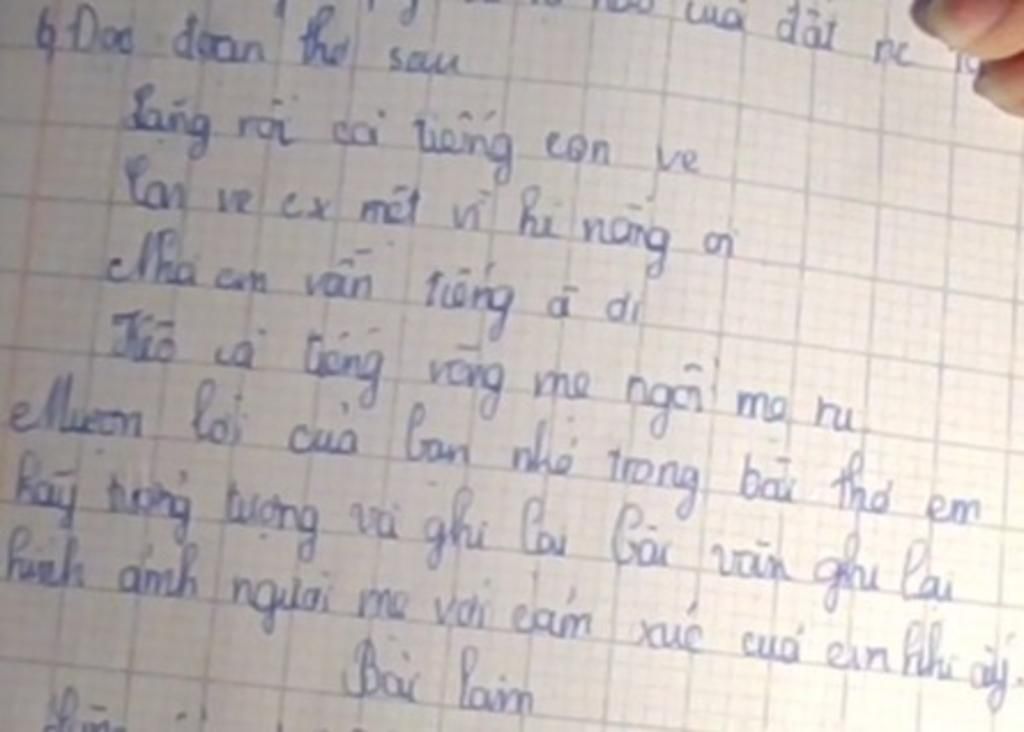 của đất nc
6, Đọc đoạn thơ sau
Lặng rồi cả tiếng con ve
Con ve cx mệt vì hè nắng oi
Nhà em vẫn tiếng ạ ời
Kẽo cà tiếng võng mẹ ngồi mẹ ru
Mượn lời của bạn nhỏ trong bài thơ em
hãy tưởng tượng và ghi lại bài văn ghi lại
hình ảnh người mẹ với cảm xúc của em khi ấy.
Bài làm